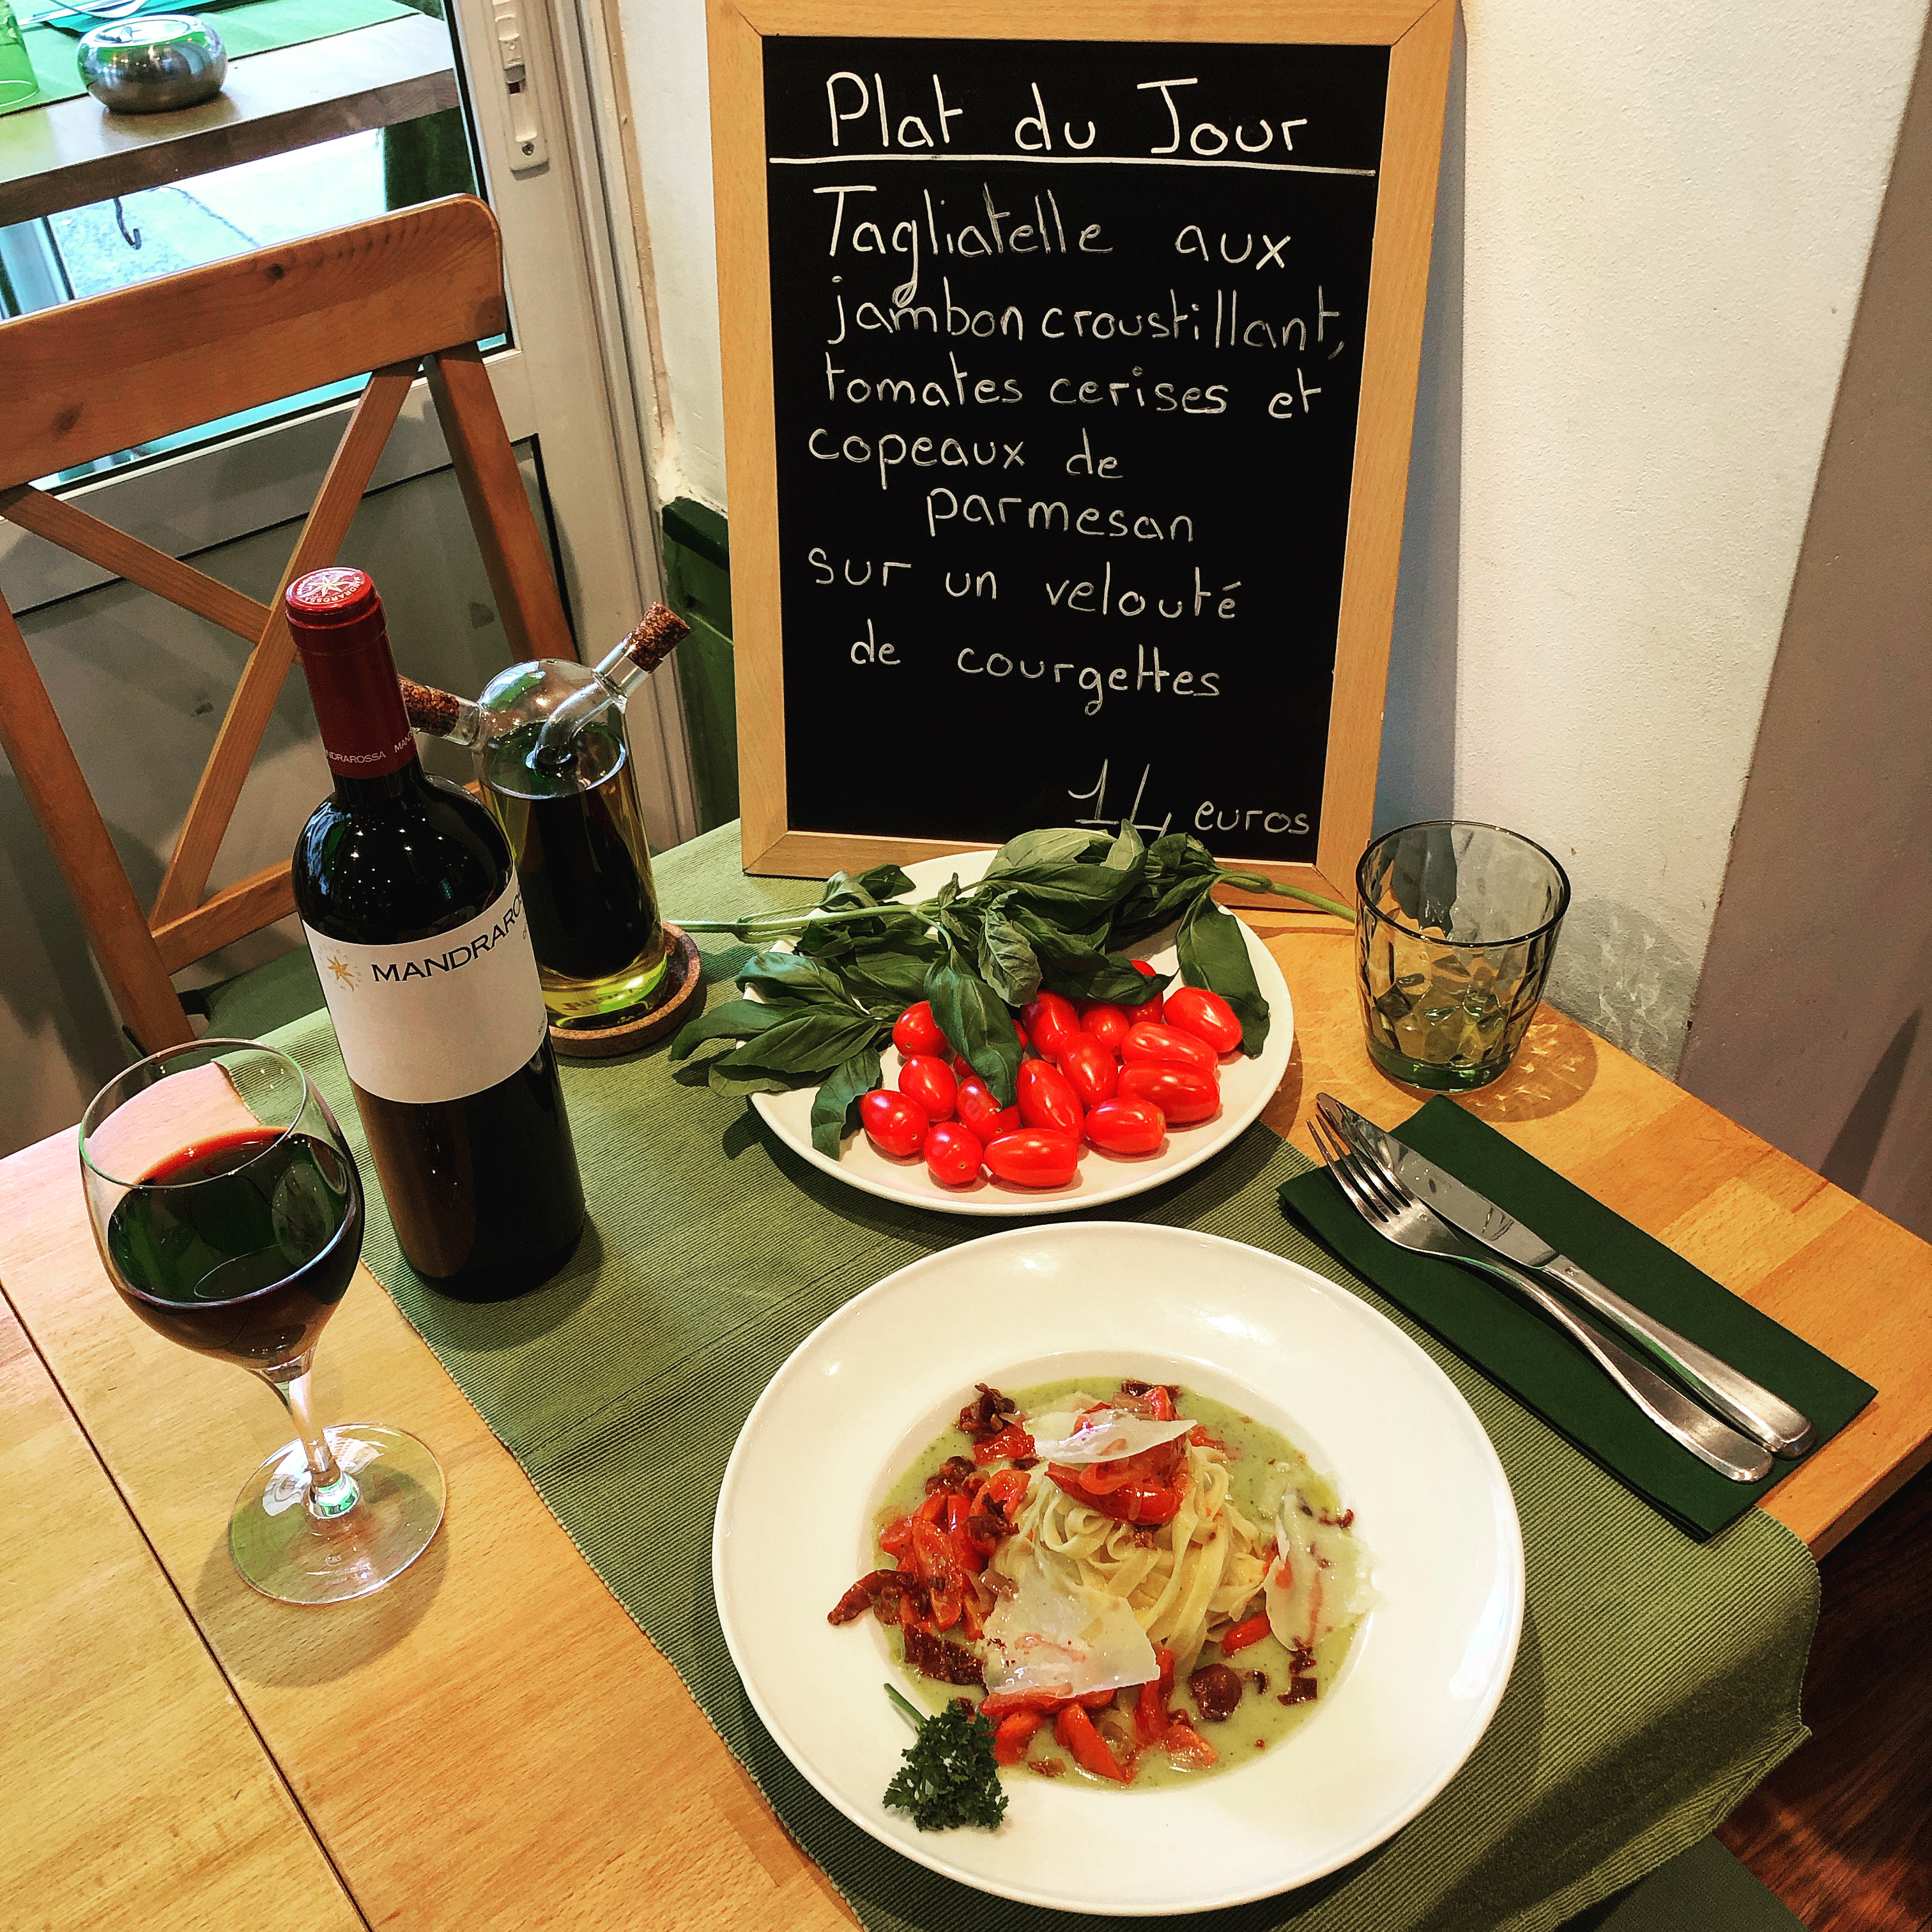 Plat du Jour
Tagliatelle aux
jambon croustillant,
tomates cerises et
copeaux de
parmesan
sur un velouté
de courgettes
14 euros
MANDRAROSSA
NDRAROSSA MAN
MANDRARO